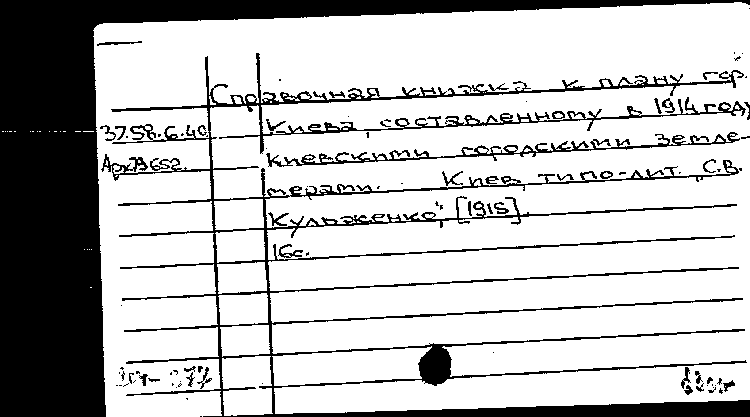 Справочная книжка к плану гор.
37.58.6.40 Киева, составленному в 1914 году
киевскими городскими земле-
мерами. Киев, типо-лит. "С.В.
Кульженко", [1915].
16с.